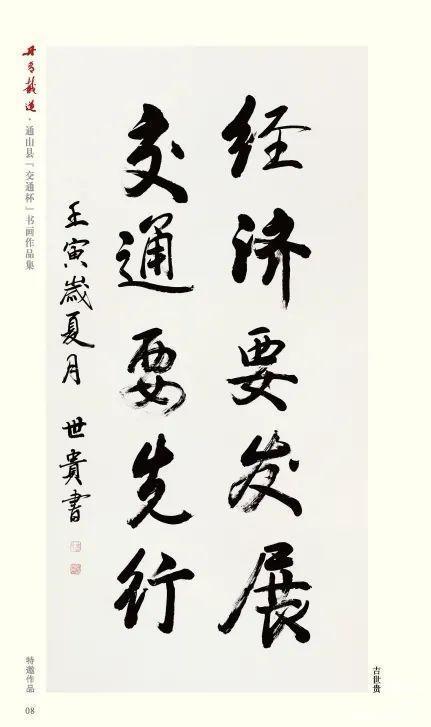 经济要发展
交通要先行
壬寅岁夏月 世贵书
丹青载道·通山县「交通杯」书画作品集
吉世贵
特邀作品
08